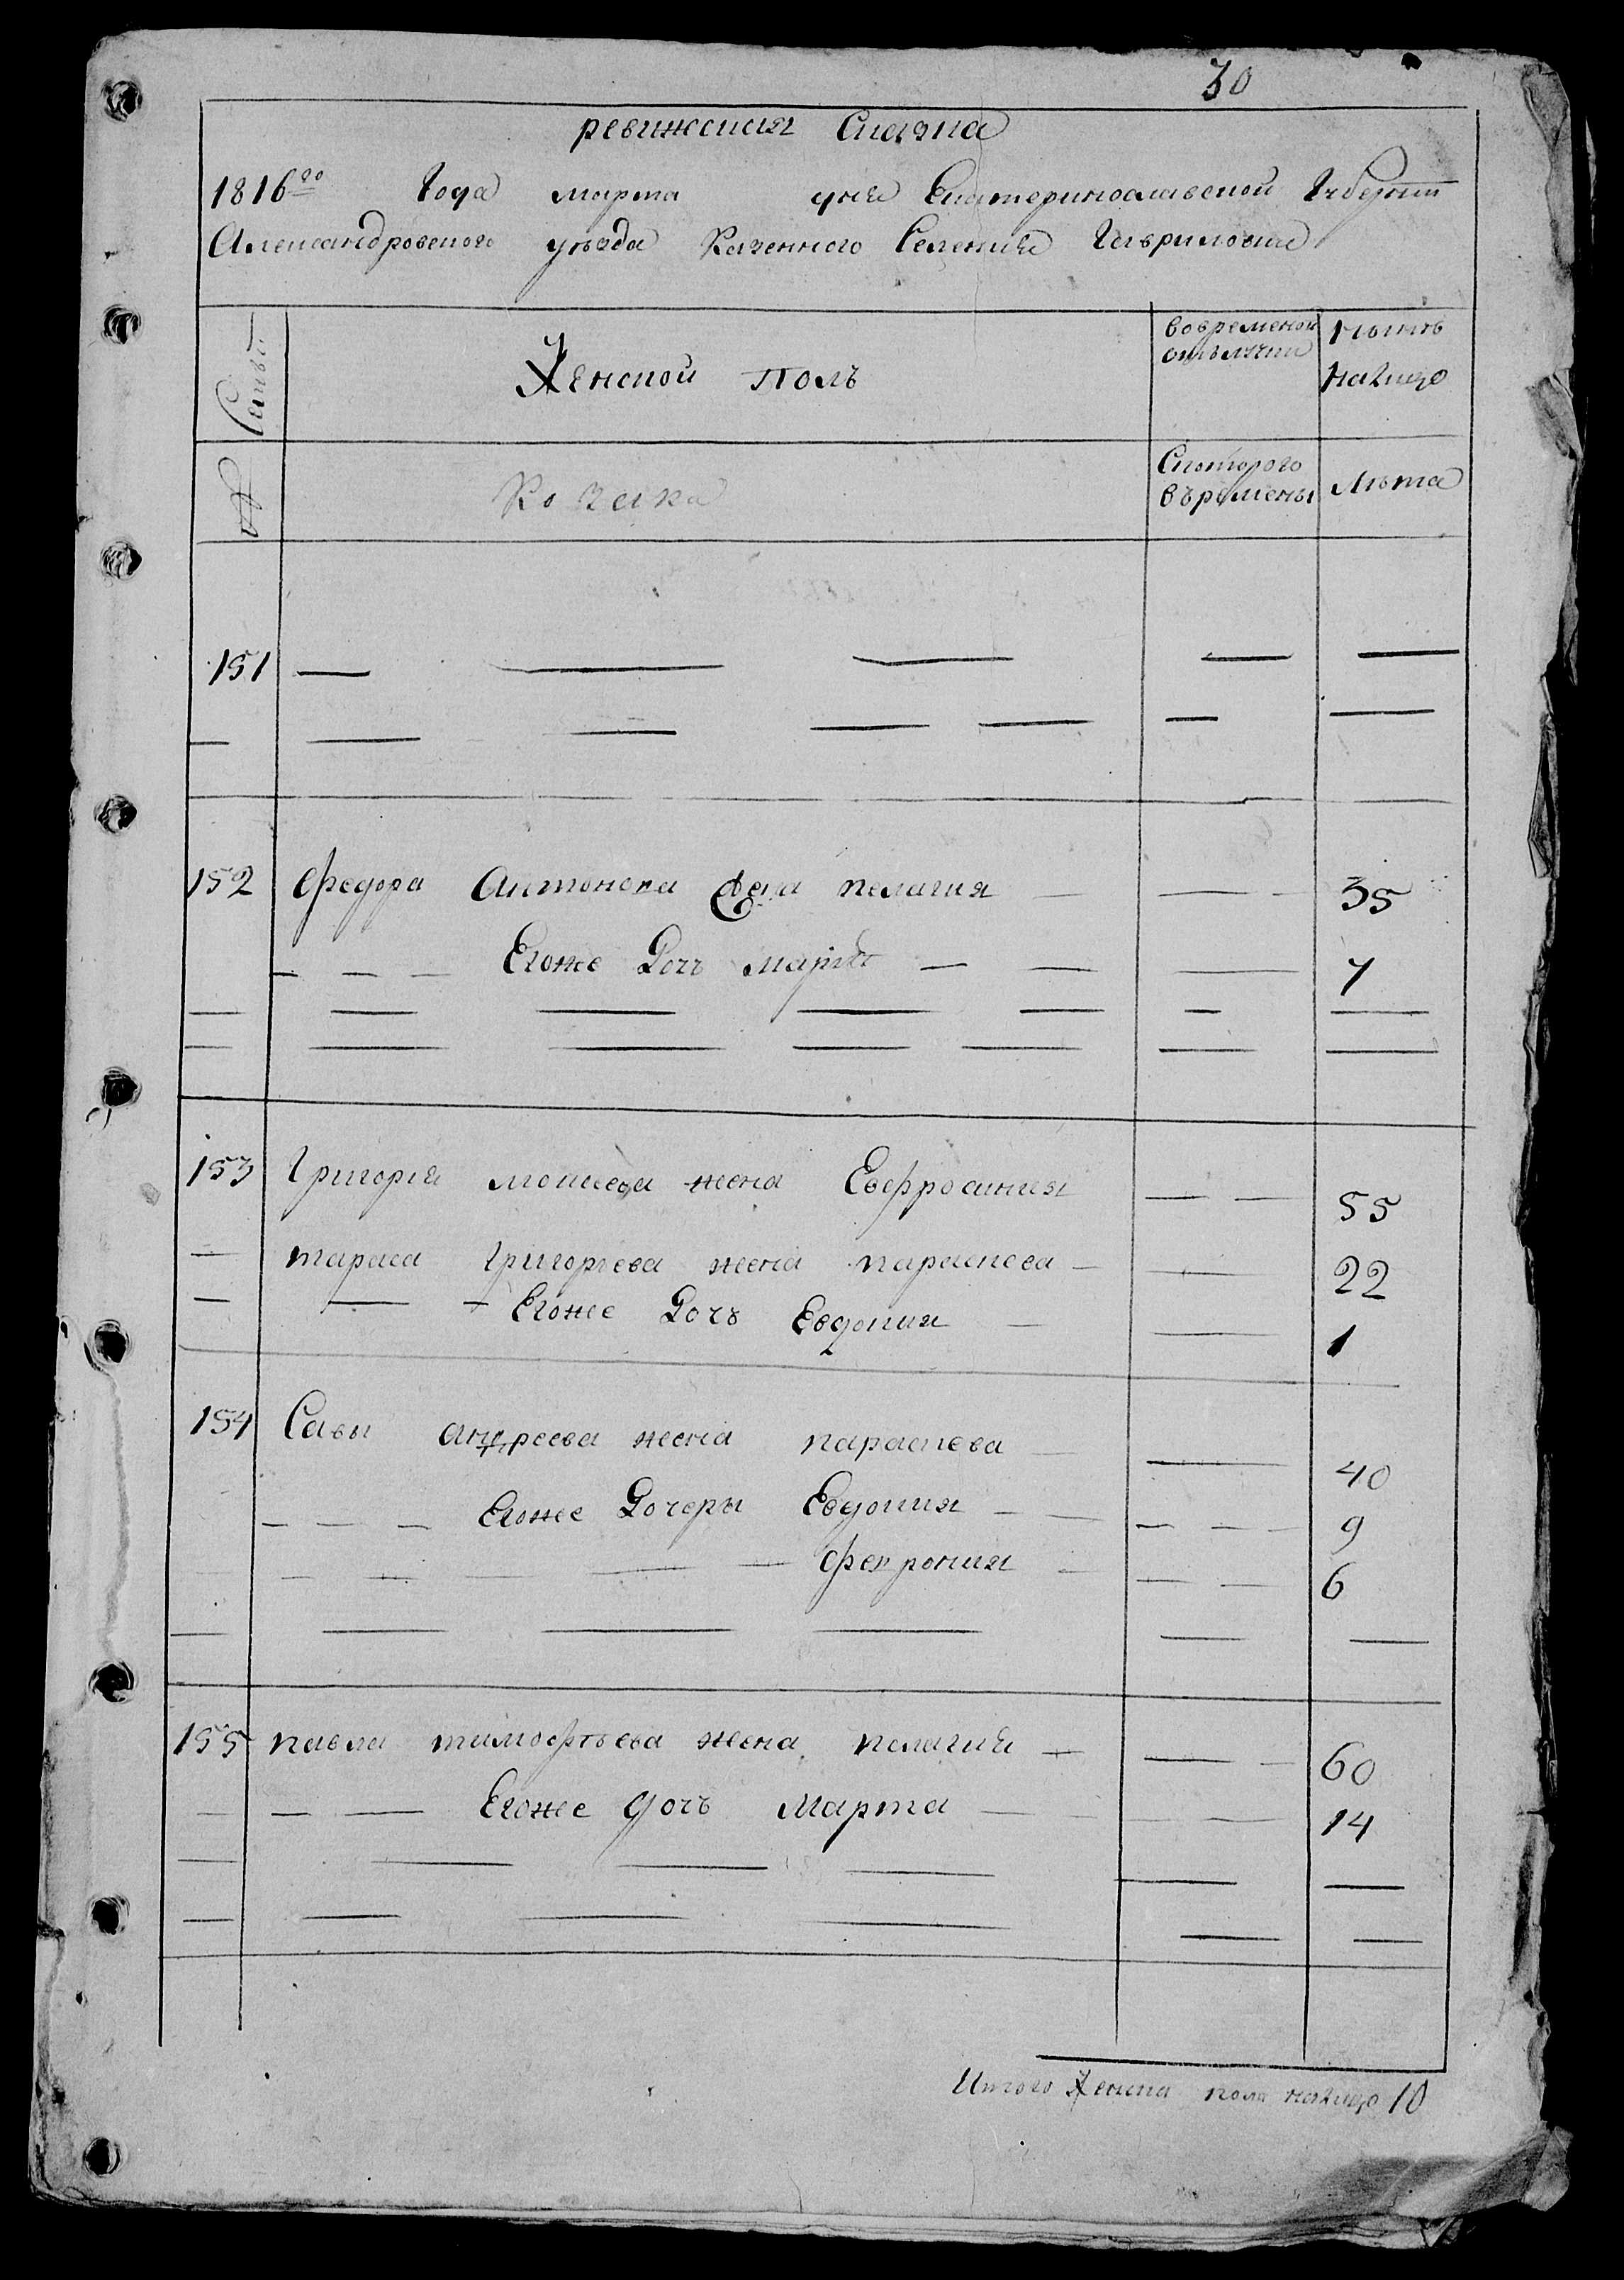 30
ревижская Сказка
1816го Года марта дня Екатеринославской Губернии
Александровского уезда Казенного Селения Гавриловки
Семьи
Женской полъ
вовременой отълучки
Ныить налицо
№
Козака
Скоторого въремены
Лъта
151
152 Федора Антонова жена пелагия 35
Егоже Дочъ марья 7
153 Григория моисеева жена Евфросиния 55
тараса Григориева жена параскева 22
Егоже Дочъ Евдокия 1
154 Савы андреева жена параскева 40
Егоже Дочеры Евдокия 9
Феврония 6
155 павла тимофъева жена пелагия 60
Егоже дочъ Марта 14
Итого Женска пола налицо 10